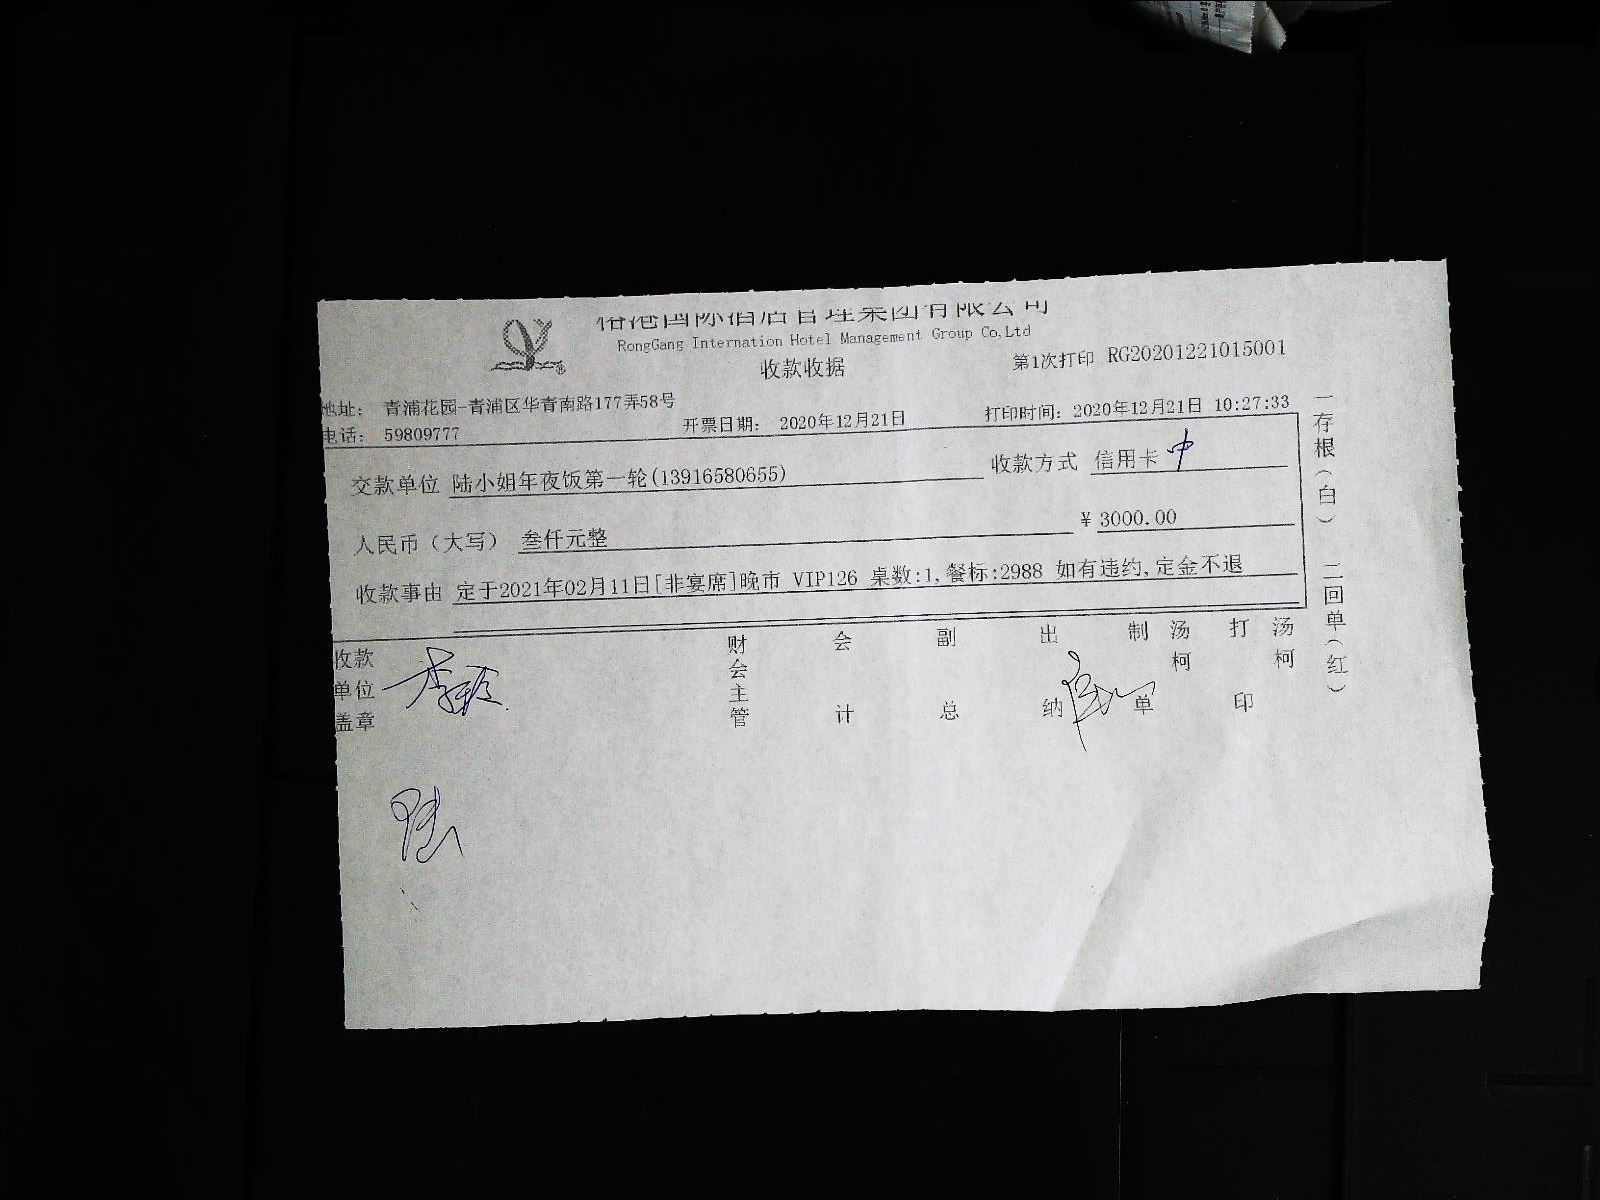 国际酒店管理集团有限公司
RongGang Internation Hotel Management Group Co,Ltd
收款收据
第1次打印 RG20201221015001
地址： 青浦花园-青浦区华青南路177弄58号
电话： 59809777
开票日期： 2020年12月21日
打印时间：2020年12月21日 10:27:33
交款单位 陆小姐年夜饭第一轮(13916580655)
收款方式 信用卡 中
人民币（大写） 叁仟元整
¥ 3000.00
收款事由 定于2021年02月11日[非宴席]晚市 VIP126 桌数:1,餐标:2988 如有违约,定金不退
收款单位盖章
财会主管
会计
副总
出纳
制单
汤柯
打印
汤柯
一存根（白） 二回单（红）
陆